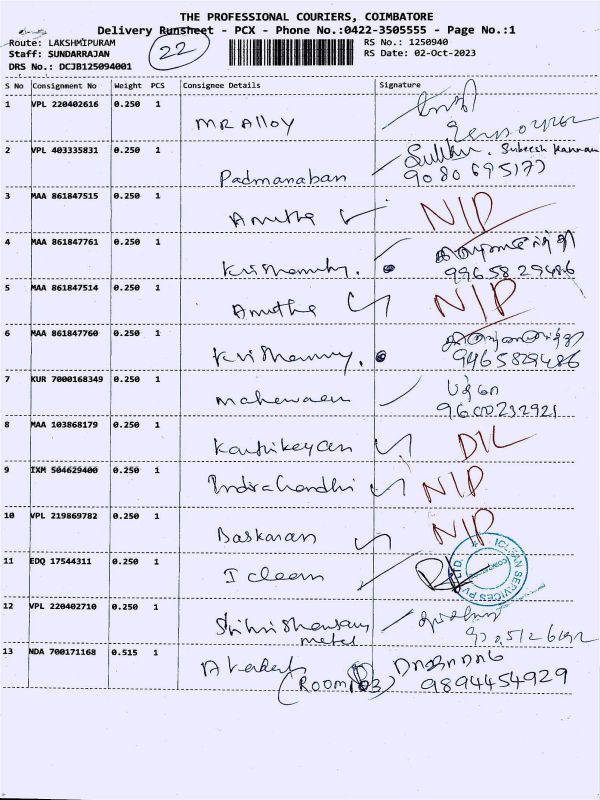 THE PROFESSIONAL COURIERS, COIMBATORE
Delivery Runsheet - PCX - Phone No.:0422-3505555 - Page No.:1
Route: LAKSHMIPURAM
Staff: SUNDARRAJAN
DRS No.: DCJB125094001
22
RS No.: 1250940
RS Date: 02-Oct-2023
S No Consignment No Weight PCS Consignee Details Signature
1 VPL 220402616 0.250 1 MR Alloy
2 VPL 403335831 0.250 1 Padmanaban Subeesh Kannan
9080695177
3 MAA 861847515 0.250 1 Anutha NIP
4 MAA 861847761 0.250 1
9965829486
5 MAA 861847514 0.250 1 Anutha NIP
6 MAA 861847760 0.250 1
9965829486
7 KUR 7000168349 0.250 1
9600232921
8 MAA 103868179 0.250 1 Karthikeyan D/L
9 IXM 504629400 0.250 1 Indira Gandhi NIP
10 VPL 219869782 0.250 1 Baskaran NIP
11 EDQ 17544311 0.250 1 I cleen ICLEAN SERVICES PVT LTD
12 VPL 220402710 0.250 1 metal
13 NDA 700171168 0.515 1
(Room 103) 9894454929